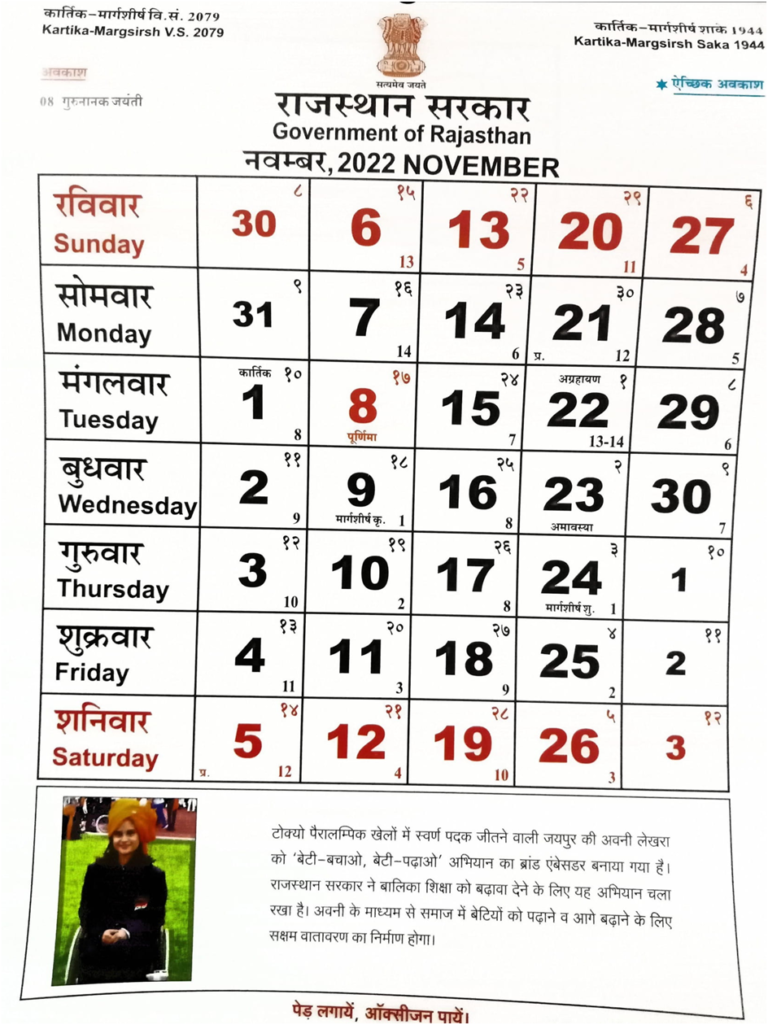 कार्तिक-मार्गशीर्ष वि.सं. 2079
Kartika-Margsirsh V.S. 2079
कार्तिक-मार्गशीर्ष शाके 1944
Kartika-Margsirsh Saka 1944
सत्यमेव जयते
अवकाश
08 गुरुनानक जयंती
ऐच्छिक अवकाश
राजस्थान सरकार
Government of Rajasthan
नवम्बर, 2022 NOVEMBER
रविवार
Sunday
30 ८
6 १५ 13
13 २२ 5
20 २९ 11
27 ६ 4
सोमवार
Monday
31 ९
7 १६ 14
14 २३ 6
21 ३० प्र. 12
28 ७ 5
मंगलवार
Tuesday
कार्तिक १० 1 8
१७ 8 पूर्णिमा
15 २४ 7
अग्रहायण १ 22 13-14
29 ८ 6
बुधवार
Wednesday
2 ११ 9
9 १८ मार्गशीर्ष कृ. 1
16 २५ 8
23 २ अमावस्या
30 ९ 7
गुरुवार
Thursday
3 १२ 10
10 १९ 2
17 २६ 8
24 ३ मार्गशीर्ष शु. 1
1 १०
शुक्रवार
Friday
4 १३ 11
11 २० 3
18 २७ 9
25 ४ 2
2 ११
शनिवार
Saturday
5 १४ प्र. 12
12 २१ 4
19 २८ 10
26 ५ 3
3 १२
टोक्यो पैरालम्पिक खेलों में स्वर्ण पदक जीतने वाली जयपुर की अवनी लेखरा
को 'बेटी-बचाओ, बेटी-पढ़ाओ' अभियान का ब्रांड एंबेसडर बनाया गया है।
राजस्थान सरकार ने बालिका शिक्षा को बढ़ावा देने के लिए यह अभियान चला
रखा है। अवनी के माध्यम से समाज में बेटियों को पढ़ाने व आगे बढ़ाने के लिए
सक्षम वातावरण का निर्माण होगा।
पेड़ लगायें, ऑक्सीजन पायें।